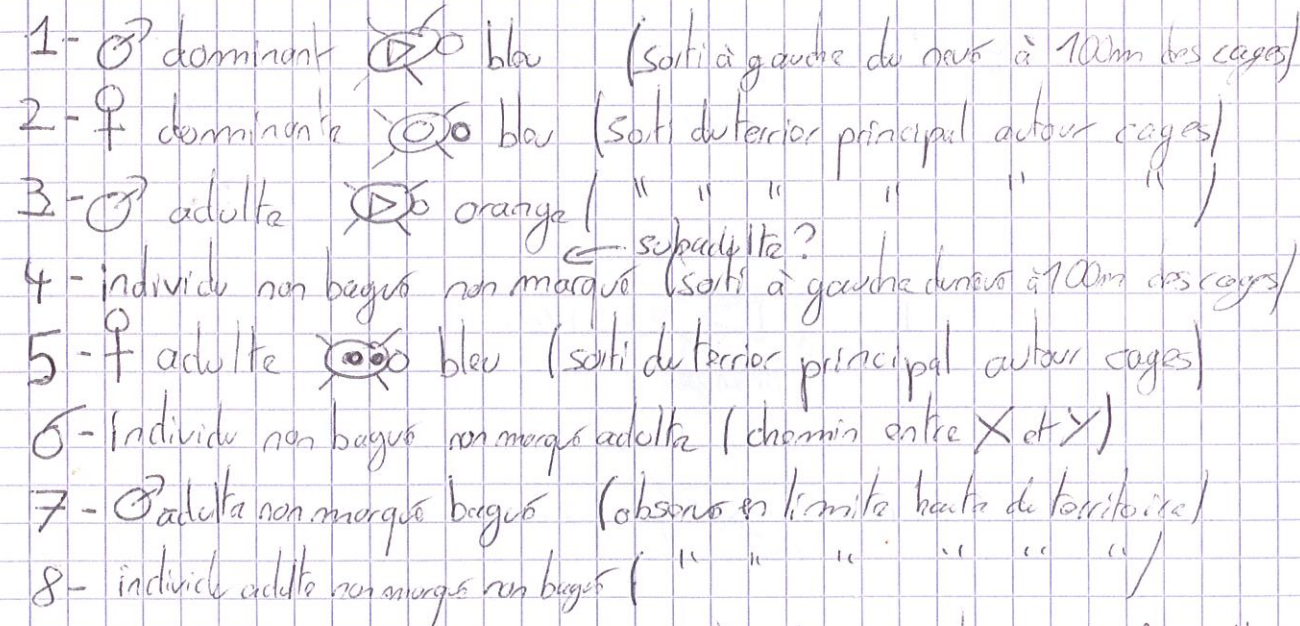 1- ♂ dominant bleu (sorti à gauche du névé à 100m des cages)
2- ♀ dominante bleu (sorti du terrier principal autour cages)
3- ♂ adulte orange ( " " " " " " )
← subadulte ?
4- individu non bagué non marqué (sorti à gauche du névé à 100m des cages)
5- ♀ adulte bleu (sorti du terrier principal autour cages)
6- Individu non bagué non marqué adulte (chemin entre X et Y)
7- ♂ adulte non marqué bagué (observé en limite haute de territoire)
8- individu adulte non marqué non bagué ( " " " " " " )